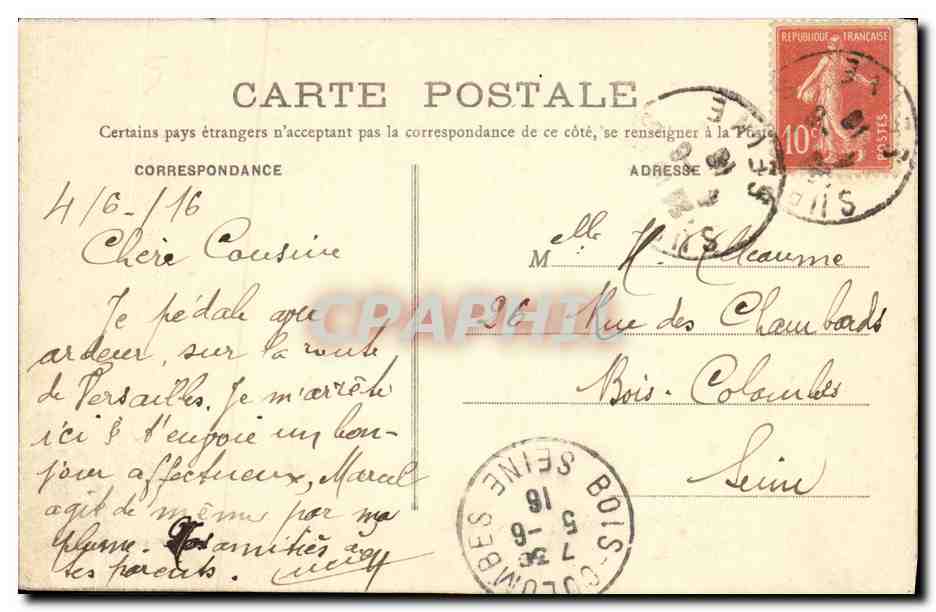 CARTE POSTALE
Certains pays étrangers n'acceptant pas la correspondance de ce côté, se renseigner à la Poste
CORRESPONDANCE
4/6-/16
Chère Cousine
Je pédale avec
ardeur, sur la route
de Versailles. Je m'arrête
ici & t'envoie un bon-
jour affectueux, Marcel
agit de même par ma
plume. amitiés à
tes parents.
ADRESSE
Melle H. Meaume
96 Rue des Chambards
Bois-Colombes
Seine
REPUBLIQUE FRANÇAISE
10c
POSTES
BOIS-COLOMBES SEINE
7 30
5 -6
16
CPARHIL